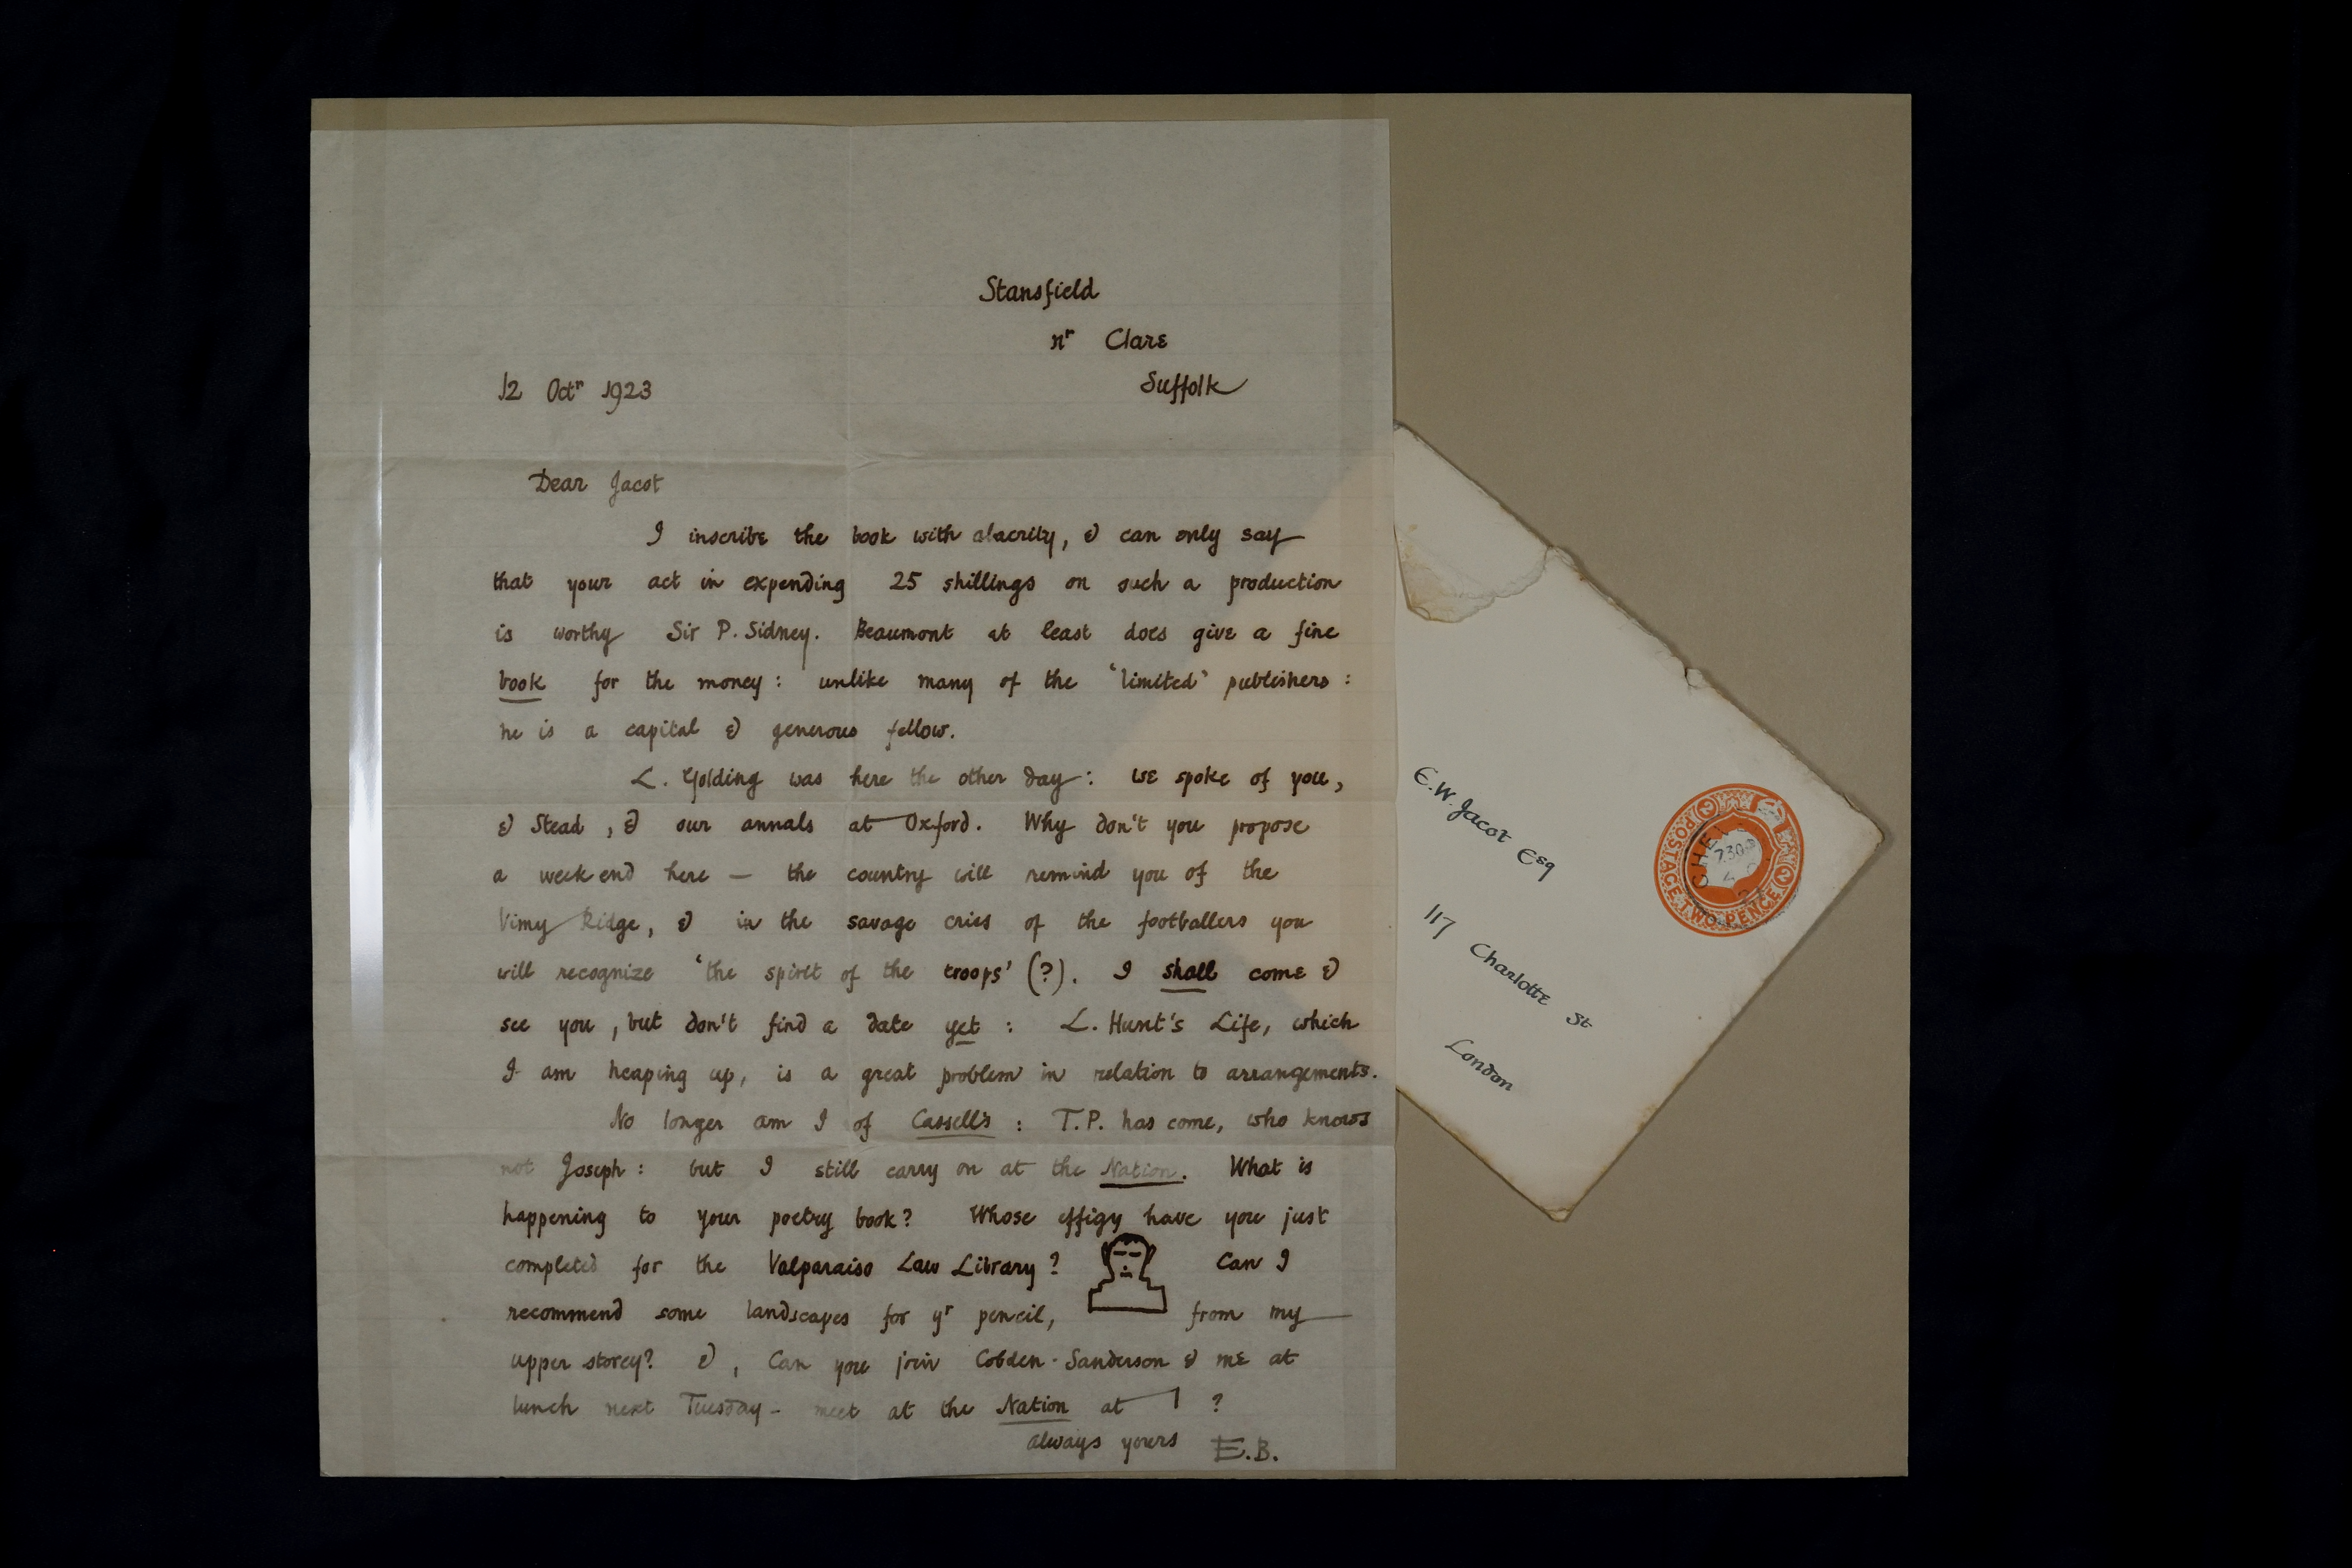 Stansfield
nr Clare
Suffolk
12 Octr 1923
Dear Jacot
I inscribe the book with alacrity, & can only say
that your act in expending 25 shillings on such a production
is worthy Sir P. Sidney. Beaumont at least does give a fine
book for the money: unlike many of the 'limited' publishers:
he is a capital & generous fellow.
L. Golding was here the other day: we spoke of you,
& Stead, & our annals at Oxford. Why don't you propose
a week end here — the country will remind you of the
Vimy Ridge, & in the savage cries of the footballers you
will recognize 'the spirit of the troops' (?). I shall come &
see you, but don't find a date yet: L. Hunt's Life, which
I am heaping up, is a great problem in relation to arrangements.
No longer am I of Cassell's: T.P. has come, who knows
not Joseph: but I still carry on at the Nation. What is
happening to your poetry book? Whose effigy have you just
completed for the Valparaiso Law Library? Can I
recommend some landscapes for yr pencil, from my
upper storey? &, Can you join Cobden-Sanderson & me at
lunch next Tuesday - meet at the Nation at 1?
always yours E.B.
E.W. Jacot Esq
117 Charlotte St
London
POSTAGE TWO PENCE
2 2
7.30